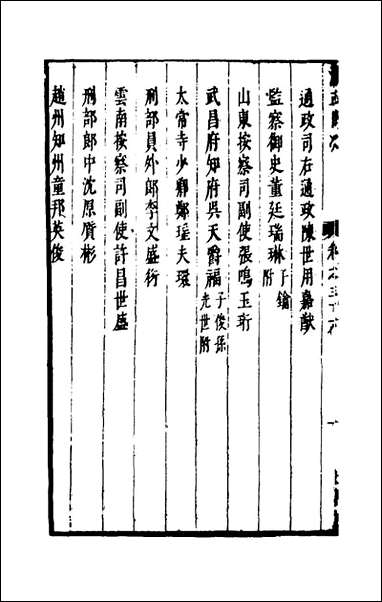 通政司右通政陳世用嘉猷
監察御史董廷瑞琳子鑰附
山東按察司副使張鳴玉珩
武昌府知府吳天爵福子俊孫光世附
太常寺少卿鄭瑤夫環
刑部員外郎李文盛衍
雲南按察司副使許昌世盛
刑部郎中沈原質彬
趙州知州童邦英俊